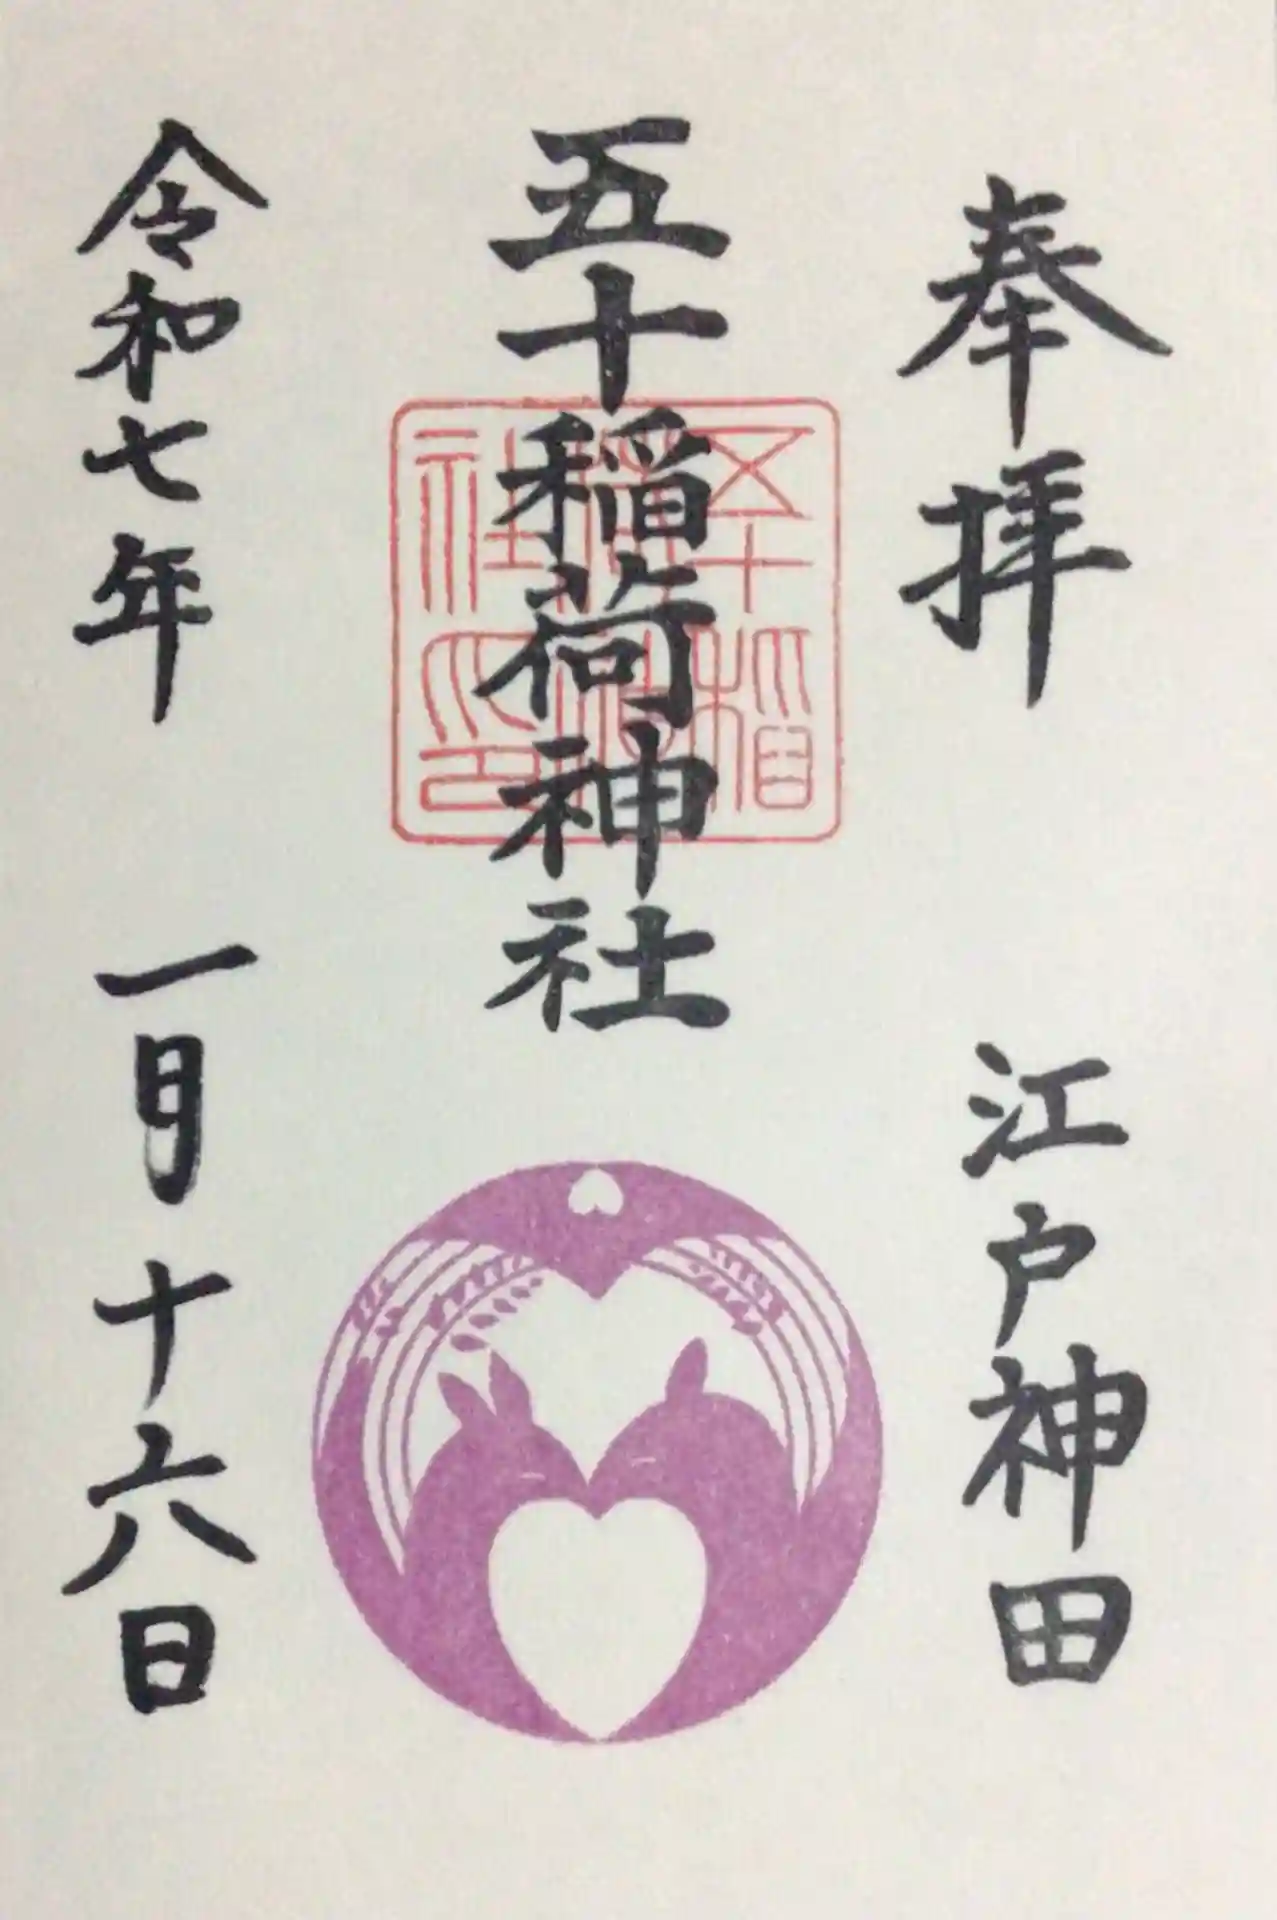 奉拝　江戸神田
五十稲荷神社
五十稲荷神社印
令和七年　一月十六日